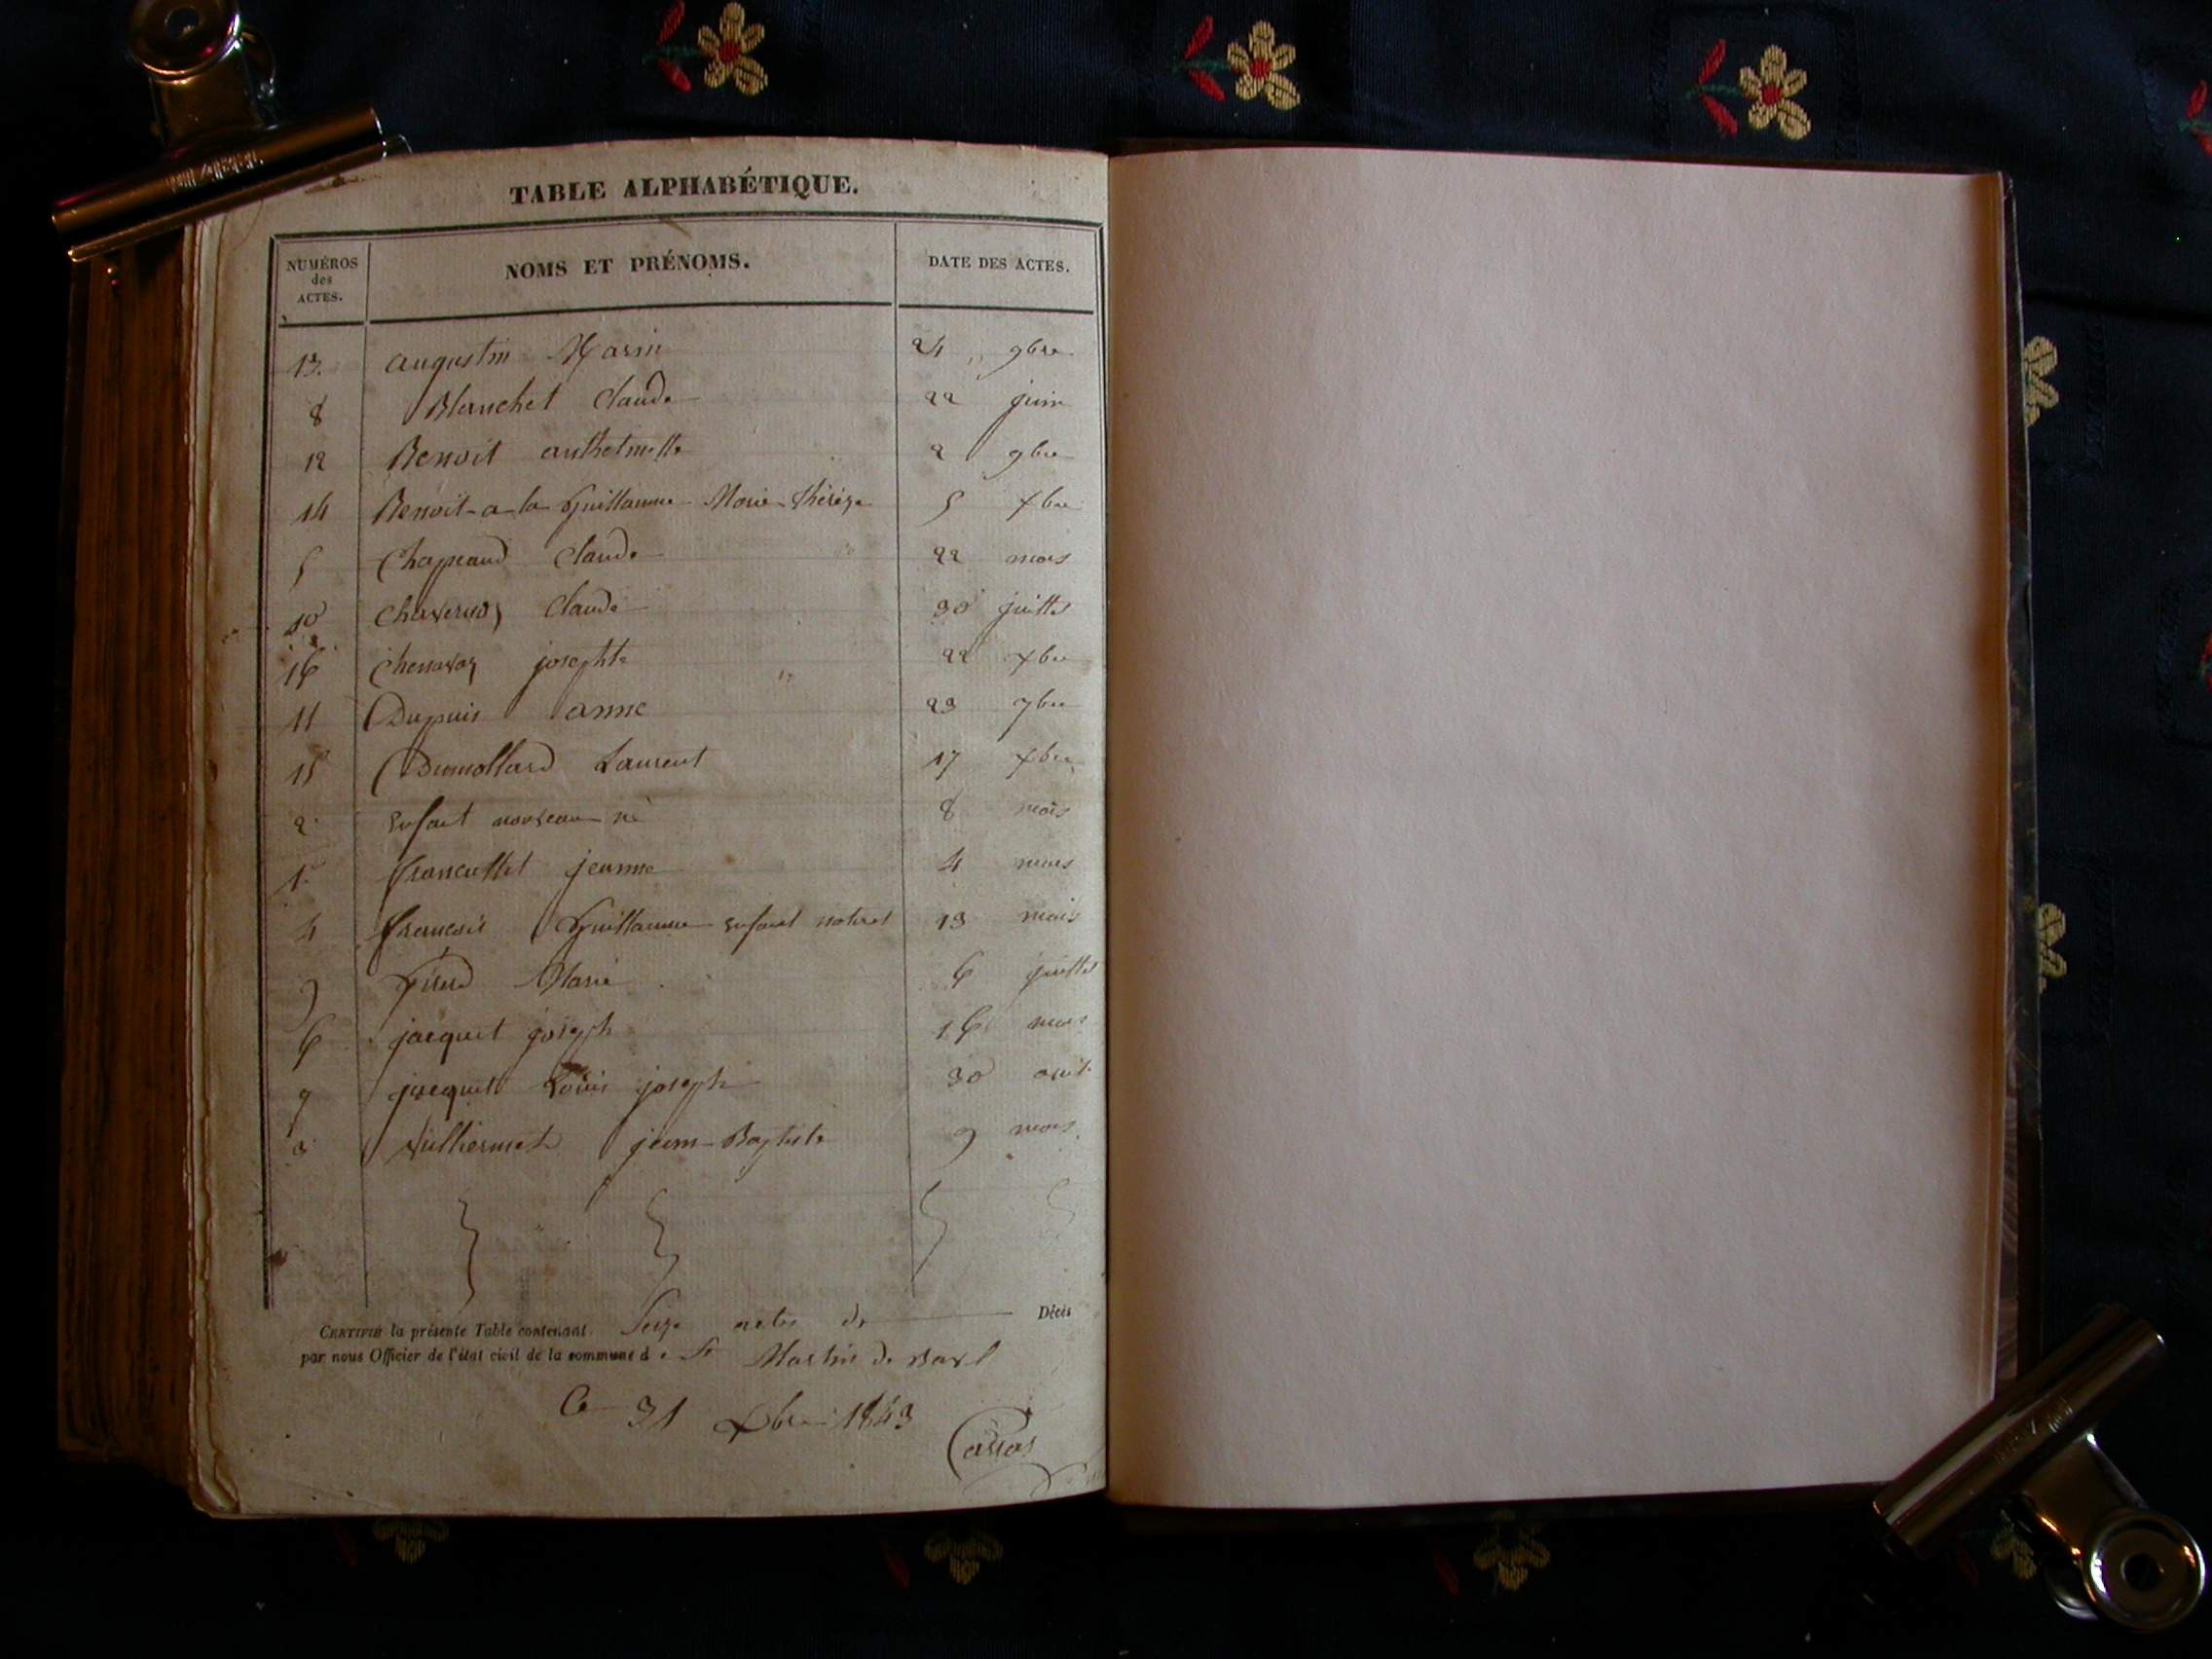 TABLE ALPHABÉTIQUE.
NUMÉROS des ACTES. NOMS ET PRÉNOMS. DATE DES ACTES.
13. augustin Marin 24 9bre
8 Blanchet Claude 22 juin
12 Benoit anthelmette 2 9bre
14 Benoit-a-la Guillaume Marie Thérèze 5 xbre
5 Chapeaud Claude 22 mars
10 Claude 30 juillet
16 Chenavaz josephte 22 xbre
11 Dupuis anne 23 7bre
15 Dumollard Laurent 17 xbre
2 Enfant nouveau né 8 mars
1. francillet jeanne 4 mars
4 francois Guillaume enfant naturel 13 mars
9 Marie 6 juillet
6 jacquet joseph 16 mars
7 jacquet Louis joseph 30 avril
3 Vulliermet jean-Baptiste 9 mars
CERTIFIÉ la présente Table contenant Seize actes de Décès
par nous Officier de l'état civil de la commune de St Martin de Bavel
Ce 31 xbre 1843